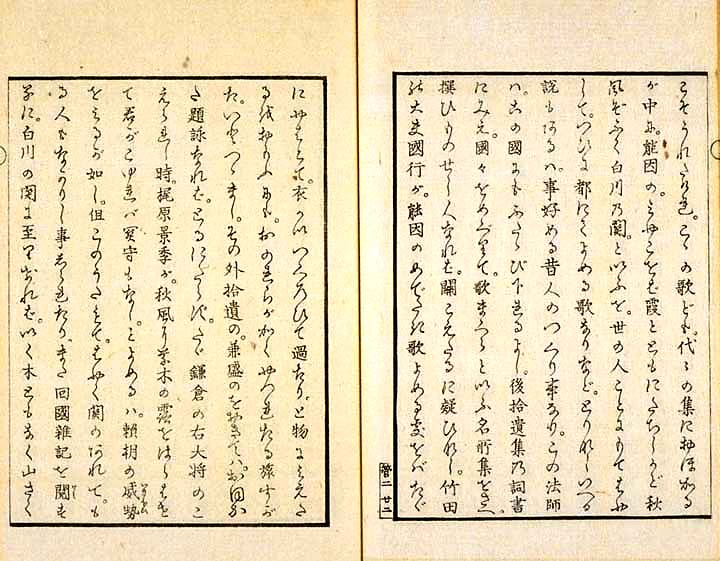 こそうれたけれ。こゝの歌ども。代々の集におほかる
が中に。能因の。みやこをば霞とともにたちしかど秋
風ぞふく白川乃関。といふを。世の人ことにもてはや
して。つひに都にてよめる歌なりなど。とりわきいへる
説もあるハ。事好める昔人のつくり事なり。この法師
ハ。この國にもふたゝび下れるよし。後拾遺集乃詞書
にみえ。國々をめぐりて。歌まくらといふ名所集をさへ
撰びものせし人なれば。關こえたるに疑ひなし。竹田
の大夫國行が。能因のめでたき歌よめる處をばたゞ
廿二
にやはとて。衣かいつくろひて過たり。と物にみえた
るをおもふにも。おのれらがかくやつれたる旅すが
た。いとつゝまし。その外拾遺の。兼盛のをおきてハ。おほか
た題詠なれば。とるにたらず。たゞ鎌倉の右大将のこ
えられし時。梶原景季が。秋風に草木の露をはらはせ
て君がこゆれバ関守もなし。とよめるハ。頼朝の威勢
をみるが如し。但このうたもて。はやく関のあれて。も
る人もなかりし事しられたり。また回國雑記を閲す
るに。白川の関に至りければ。いく木ともなく山さく